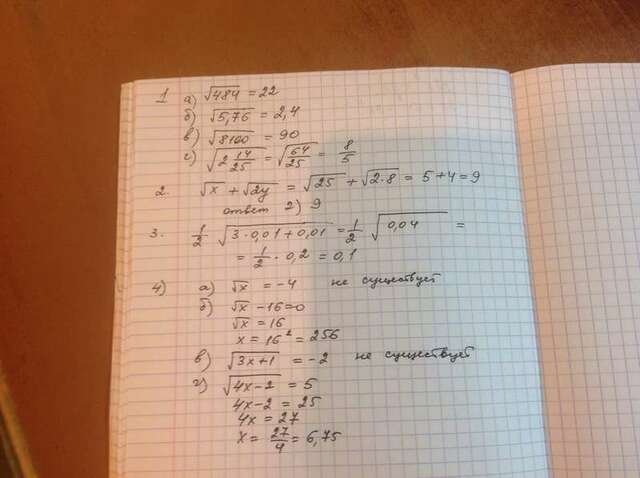 1 а) √484 = 22
б) √5,76 = 2,4
в) √8100 = 90
г) √(2 14/25) = √(64/25) = 8/5
2. √x + √2y = √25 + √2·8 = 5+4=9
ответ 2) 9
3. 1/2 √(3·0,01+0,01) = 1/2 √0,04 =
= 1/2 · 0,2 = 0,1
4) а) √x = -4 не существует
б) √x -16=0
√x = 16
x = 16² = 256
в) √(3x+1) = -2 не существует
г) √(4x-2) = 5
4x-2 = 25
4x = 27
x = 27/4 = 6,75